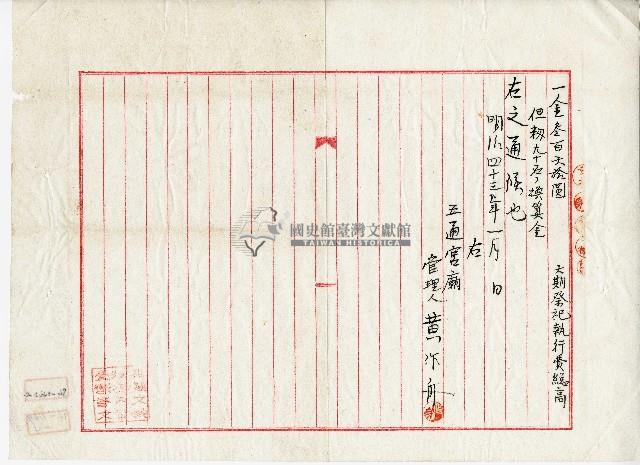 一金叁百六拾圓　大期祭祀執行費総高
但籾九十石ノ換算金
右之通候也
明治四十三年一月　日
右
五通宮廟
管理人　黃作舟
國史館臺灣文獻館
TAIWAN HISTORICA